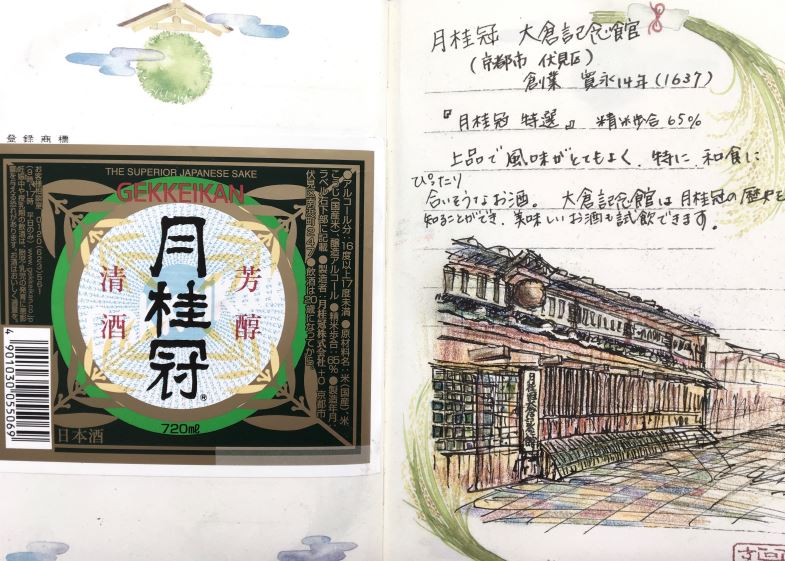 登録商標
THE SUPERIOR JAPANESE SAKE
GEKKEIKAN
月桂冠
®
芳醇
清酒
720㎖
日本酒
4 901030 055069
●アルコール分:16度以上17度未満 ●原材料名:米(国産)、米
こうじ(国産米)、醸造アルコール ●精米歩合:65% ●製造年月:
ラベル右下部に記載 ●製造者:月桂冠株式会社 京都市
伏見区南浜町247 ●飲酒は20歳になってから。
月桂冠 大倉記念館
(京都市 伏見区)
創業 寛永14年(1637)
『月桂冠 特選』 精米歩合 65%
上品で風味がとてもよく、特に、和食に
ぴったり
合いそうなお酒。 大倉記念館は月桂冠の歴史を
知ることができ、美味しいお酒も試飲できます。
月桂冠大倉記念館